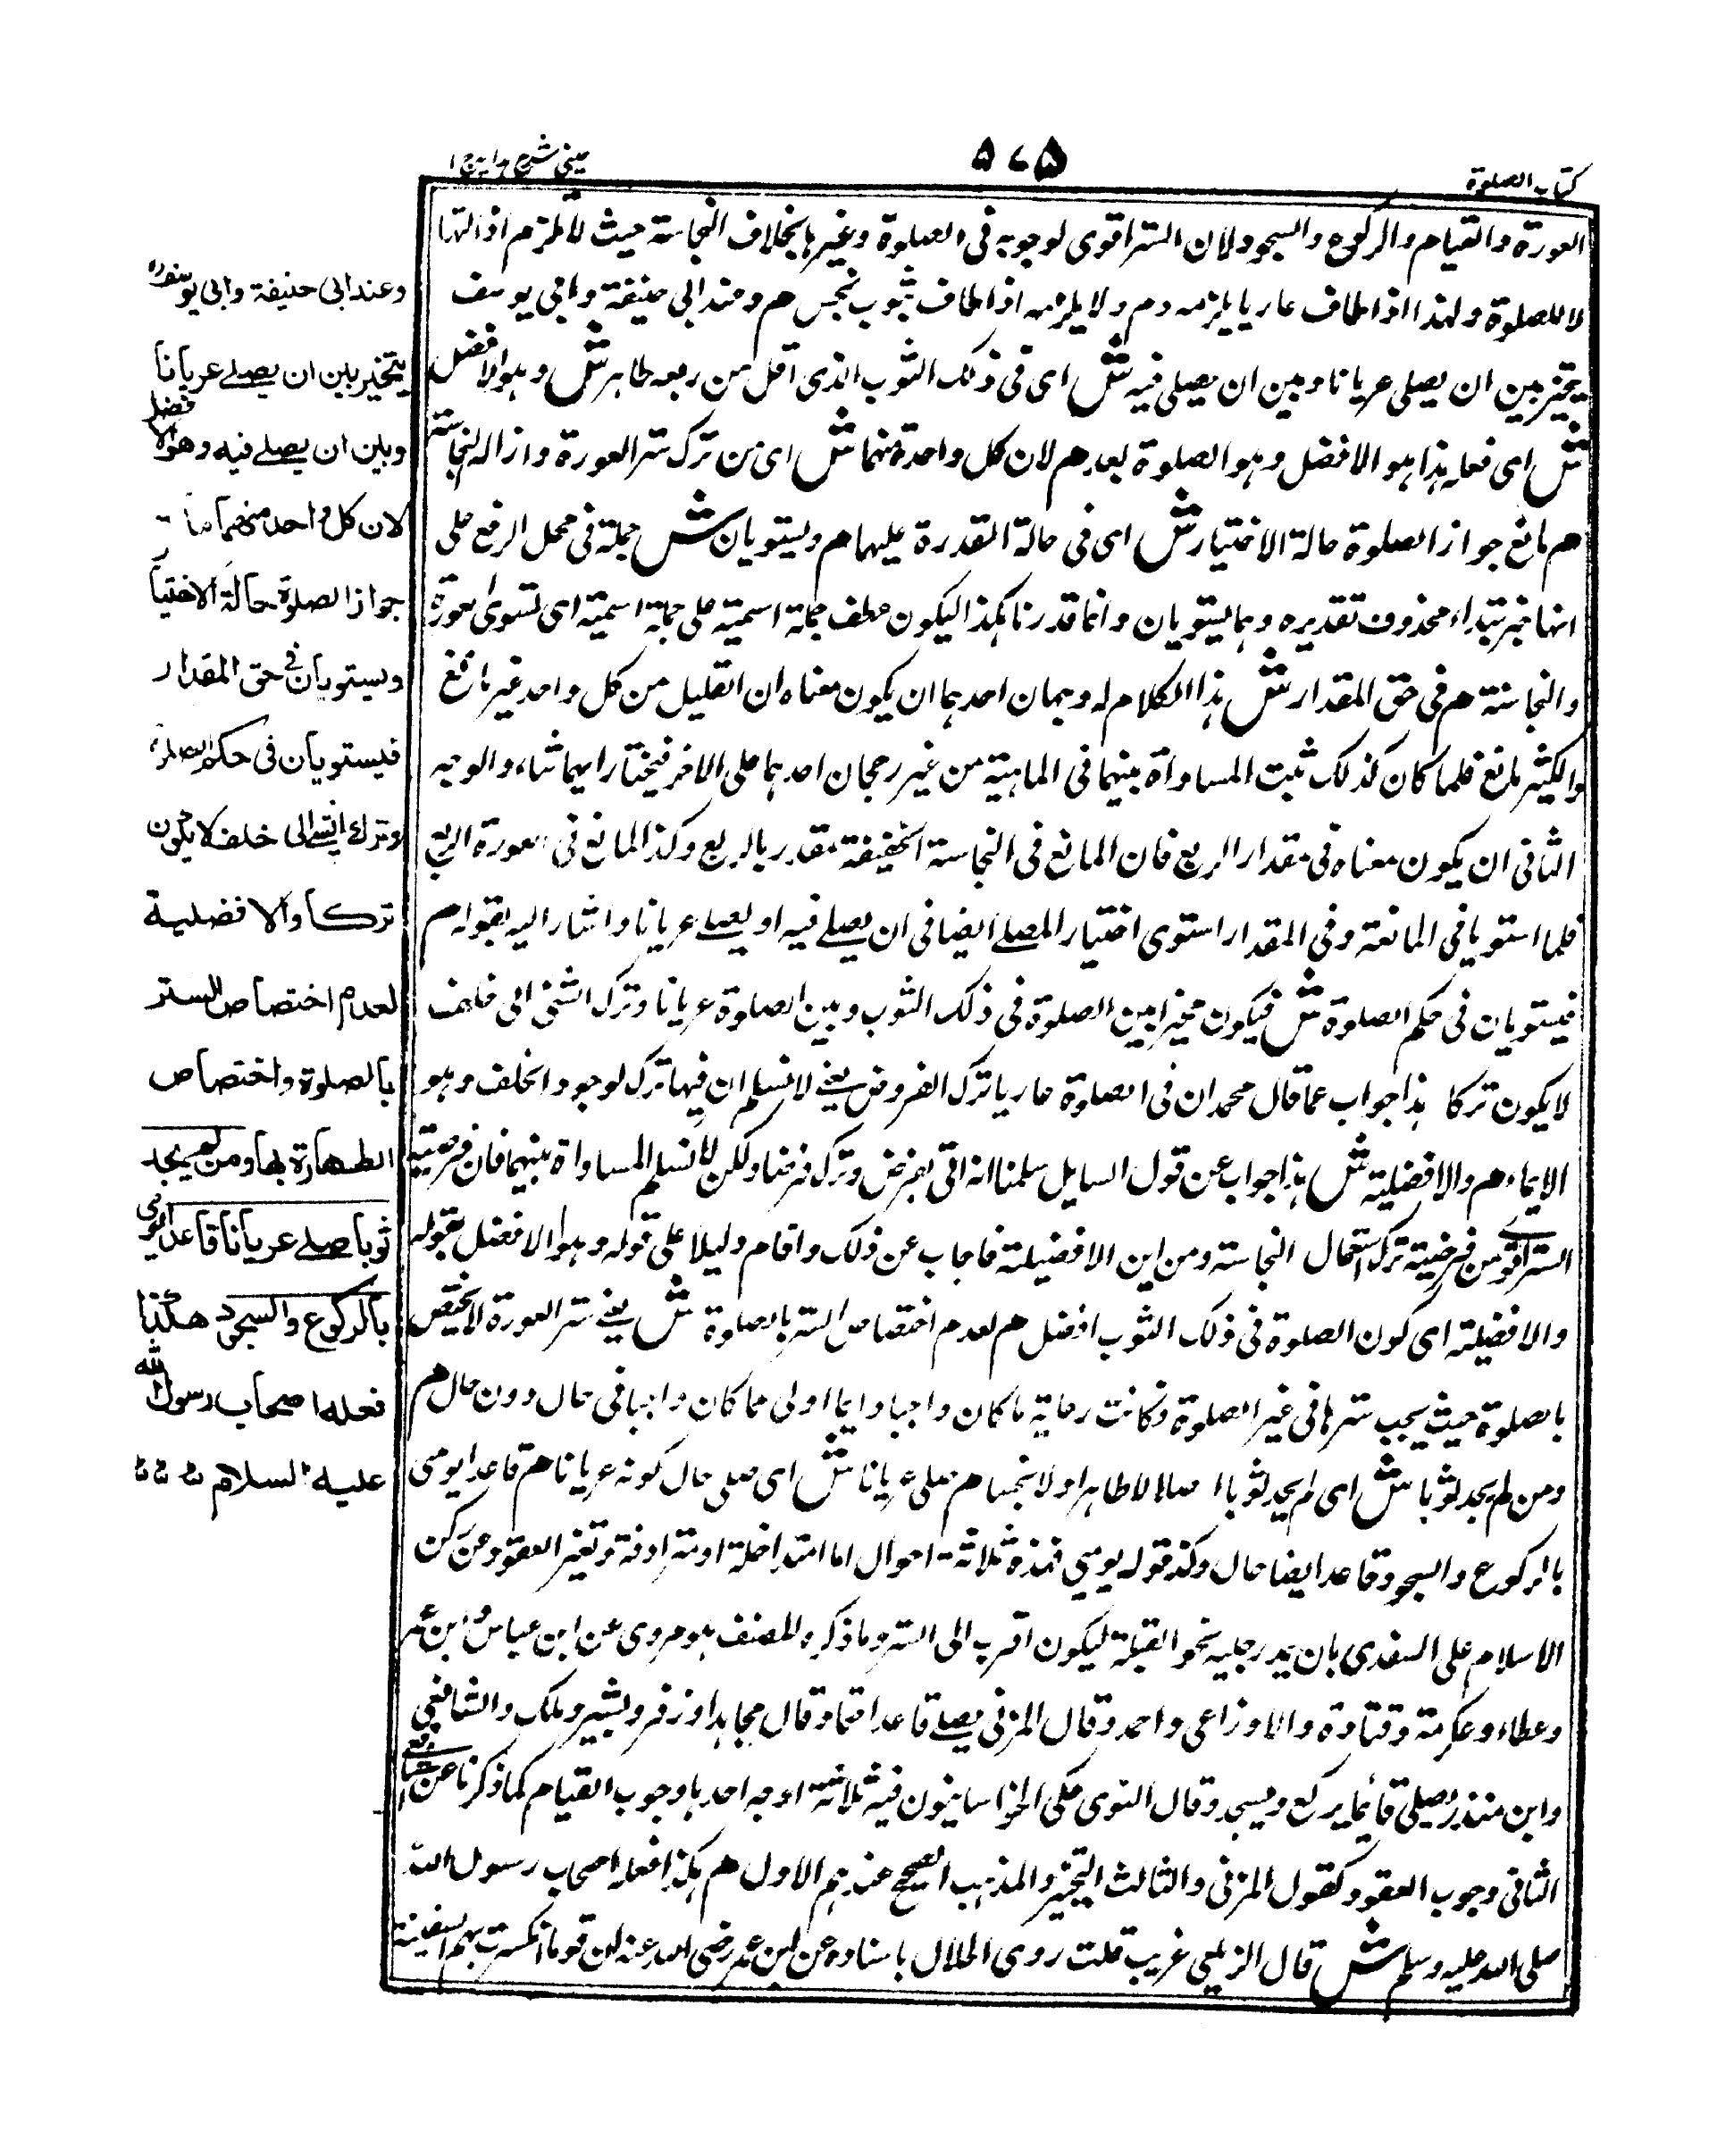 كتاب الصلوة
۵۷۵
عيني شرح هداية ج ١
العورة والقيام والركوع والسجود ولان الستر اقوى لوجوبه فى الصلوة وغيرها بخلاف النجاسة حيث لا تلزم ازالتها
لا للصلوة ولهذا اذا طاف عاريا يلزمه دم ولا يلزمه اذا طاف بثوب نجس هم وعند ابى حنيفة وابى يوسف
يتخير بين ان يصلى عريانا وبين ان يصلى فيه ش اى فى ذلك الثوب الذى اقل من ربعه طاهر ش وهو الافضل
ش اى فعله هذا هو الافضل وهو الصلوة به هم لان كل واحدة منهما ش اى من ترك ستر العورة وازالة النجاسة
هم مانع جواز الصلوة حالة الاختيار ش اى فى حالة القدرة عليهما هم ويستويان ش جملة فى محل الرفع على
انها خبر مبتداء محذوف تقديره وهما يستويان وانما قدرنا هكذا ليكون عطف جملة اسمية على جملة اسمية اى تستوى العورة
والنجاسة هم فى حق المقدار ش هذا الكلام له وجهان احدهما ان يكون معناه ان القليل من كل واحد غير مانع
والكثير مانع فلما كان كذلك ثبت المساواة بينهما فى الماهية من غير رجحان احدهما على الاخر فيختار ايهما شاء والوجه
الثانى ان يكون معناه فى مقدار الربع فان المانع فى النجاسة الخفيفة مقدر بالربع وكذا المانع فى العورة الربع
فلما استويا فى المانعة وفى المقدار استوى اختيار المصلے ايضا فى ان يصلے فيه او يصلے عريانا واشار اليه بقوله هم
فيستويان فى حكم الصلوة ش فيكون مخيرا بين الصلوة فى ذلك الثوب وبين الصلوة عريانا وترك الشئ الى خلف
لا يكون تركا هذا جواب عما قال محمد ان فى الصلوة عاريا ترك الفروض يعنے لا نسلم ان فيها ترك لوجود الخلف وهو
الايماء هم والافضلية ش هذا جواب عن قول السايل سلمنا انه اتى بفرض وترك فرضا ولكن لا نسلم المساواة بينهما فان فرضية
الستر اقوے من فرضية ترك استعمال النجاسة ومن اين الافضيلة فاجاب عن ذلك واقام دليلا على قوله وهو الافضل بقوله
والافضيلة اى كون الصلوة فى ذلك الثوب افضل هم لعدم اختصاص الستر بالصلوة ش يعنے ستر العورة لا يختص
بالصلوة حيث يجب سترها فى غير الصلوة فكانت رعاية ما كان واجبا دايما اولى مما كان واجبا فى حال دون حال هم
ومن لم يجد ثوبا ش اى لم يجد ثوبا اصلا لا طاهرا ولا نجسا هم صلى عريانا ش اى صلى حال كونه عريانا هم قاعدا يومى
بالركوع والسجود وقاعدا ايضا حال وكذ قوله يومى فهذه ثلاثة احوال اما متداخلة او مترادفة وتغير العقود عن ركن
الاسلام على السغدى بان يمد رجليه نحو القبلة ليكون اقرب الى الستر وما ذكره المصنف هو مروى عن ابن عباس وابن عمر
وعطاء وعكرمة وقتادة والاوزاعى واحمد وقال المزنى يصلے قاعدا حتما وقال مجاهد وزفر وبشير وملك والشافعى
وابن منذر يصلى قائما يركع ويسجد وقال النوى حكى الخراسانيون فيه ثلاثة اوجه احدها وجوب القيام كما ذكرنا عن الشافعے
الثانى وجوب العقود كقول المزنى والثالث التخيير والمذهب الصحيح عندهم الاول هم هكذا فعله اصحاب رسول الله
صلى الله عليه وسلم ش قال الزيلعى غريب قلت روى الخلال باسناده عن ابن عمر رضى الله عنه ان قوما انكسرت بهم السفينة
وعند ابى حنيفة وابى يوسف
يتخير بين ان يصلے عريانا
وبين ان يصلے فيه وهو الافضل
لان كل واحد منهما مانع
جواز الصلوة حالة الاختيار
ويستويان فى حق المقدار
فيستويان فى حكم الصلوة
وترك الشے الى خلف لا يكون
تركا والافضلية
لعدم اختصاص الستر
بالصلوة واختصاص
الطهارة بها ومن لم يجد
ثوبا صلے عريانا قاعدا يومى
بالركوع والسجود هكذا
فعله اصحاب رسول الله
عليه السلام